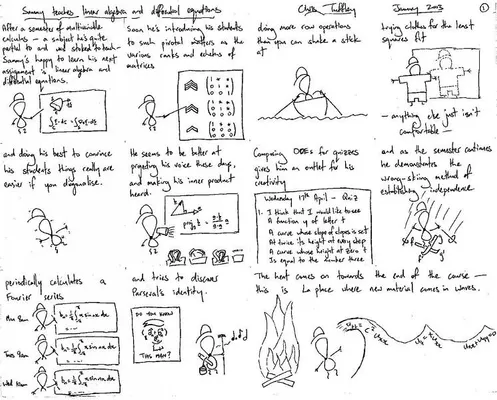 Sammy teaches linear algebra and differential equations
Chris Tuffley
January 2003
1
After a semester of multivariable
calculus — a subject he's quite
partial to and
Sammy's happy to learn his next
assignment is linear algebra and
differential equations.
Soon he's introducing his students
to such pivotal matters as the
various ranks and echelons of
matrices
doing more row operations
than you can shake a stick
at
trying clothes for the least
squares fit
— anything else just isn't
comfortable —
and doing his best to convince
his students things really are
easier if you diagonalise.
He seems to be better at
projecting his voice these days,
and making his inner product
heard.
Composing ODEs for quizzes
gives him an outlet for his
creativity
Wednesday 17th April — Quiz
1. I think that I would like to see
A function y of letter t
A curve whose slope of slopes is set
At twice its height at every step
A curve whose height at zero t
Is equal to the number three
and as the semester continues
he demonstrates the
wrong-skiing method of
establishing independence
periodically calculates a
Fourier series
Mon 9am
Tues 9am
Wed 10am
and tries to discover
Parseval's identity.
DO YOU KNOW
THIS MAN?
The heat comes on towards the end of the course —
this is La place where new material comes in waves.